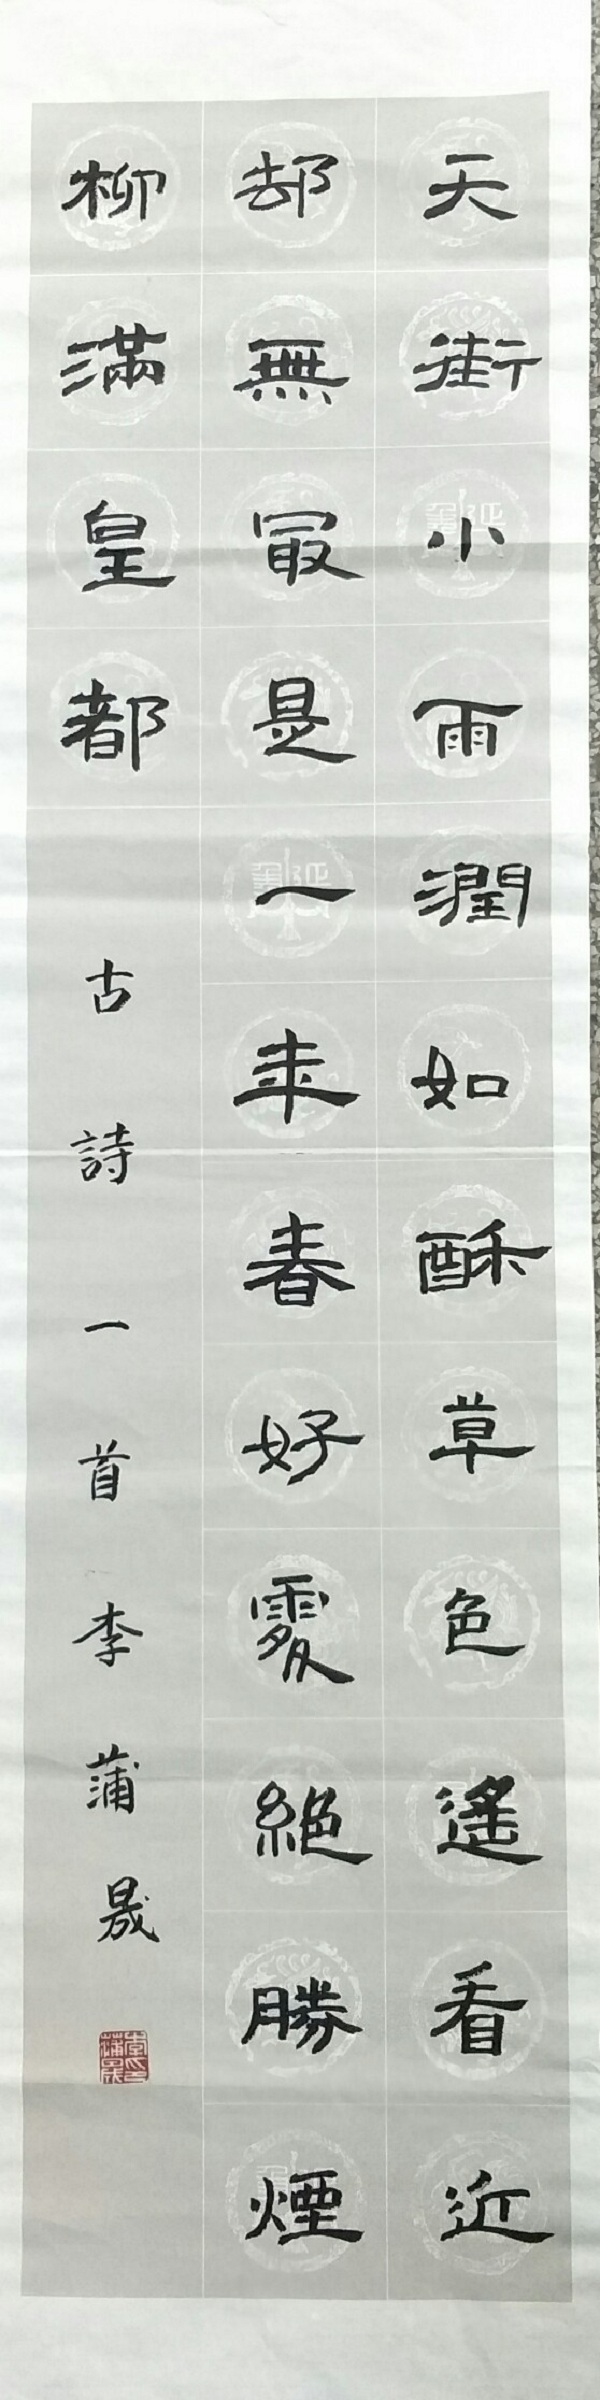 天街小雨潤如酥草色遙看近
却無冣是一年春好覂絕勝煙
柳滿皇都
古詩一首李蒲晟